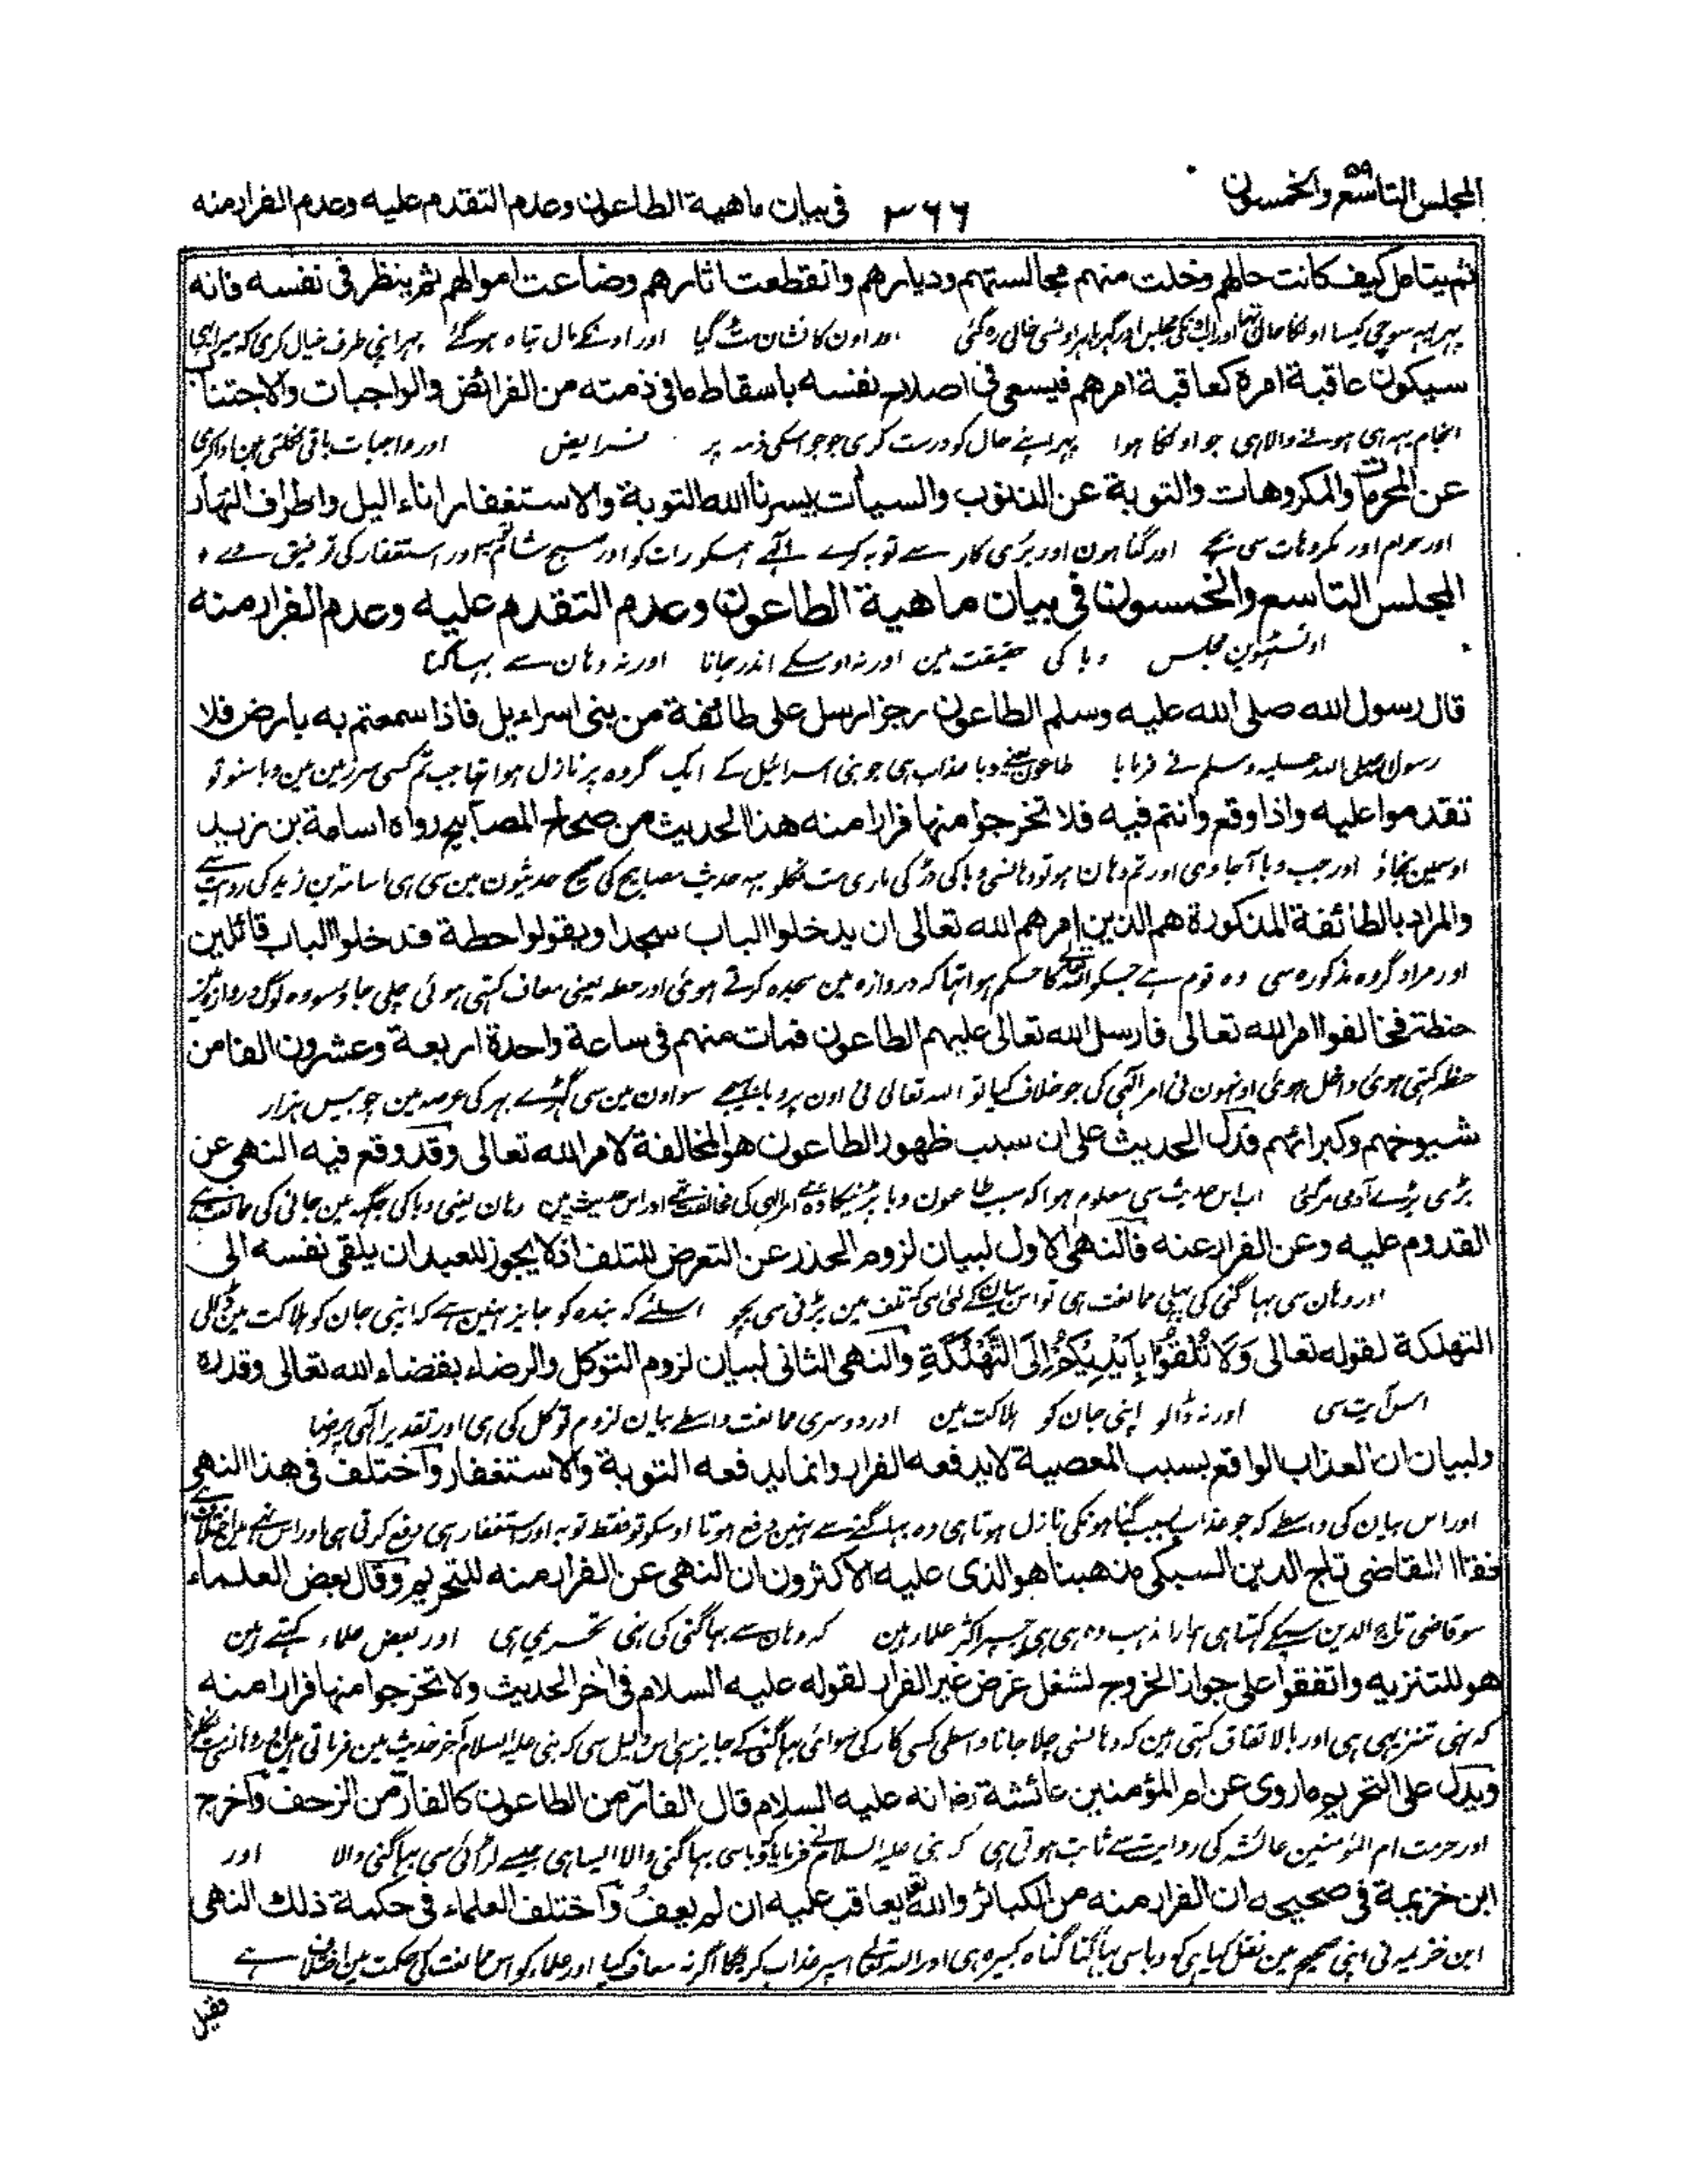 المجلس التاسع والخمسون ۵۹
۳۶۶
في بيان ماهية الطاعون وعدم التقدم عليه وعدم الفرار منه
ثم يتامل كيف كانت حالهم وخلت منهم مجالستهم وديارهم وانقطعت اثارهم وضاعت اموالهم ثم ينظر في نفسه فانه
پہر یہہ سوچی کیسا اونکا حال تہا اور اونکی مجلس اور گہر بار اونسی خالی رہ گئی اور اون کا نشان مٹ گیا اور اونکے مال تباہ ہوگئے پہر اپنی طرف خیال کری کہ میرا بہی
سيكون عاقبة امره كعاقبة امرهم فيسعى في اصلاح نفسه باسقاط ما في ذمته من الفرائض والواجبات والاجتناب
انجام یہہ ہی ہونے والا ہی جو اونکا ہوا پہر اپنے حال کو درست کری جو جو اسکی ذمہ پر فرایض اور واجبات باقی نکلتی ہین ادا کری
عن المحرمات والمكروهات والتوبة عن الذنوب والسيأت يسرنا الله التوبة والاستغفار اناء اليل واطراف النهار
اور حرام اور مکروہات سی بچے اور گناہون اور بری کار سے توبہ کرے الہی ہمکو رات کو اور صبح شام توبہ اور استغفار کی توفیق دے
المجلس التاسع والخمسون في بيان ماهية الطاعون وعدم التقدم عليه وعدم الفرار منه
اونسٹہوین مجلس وبا کی حقیقت مین اور نہ اوسکے اندر جانا اور نہ وہان سے بہاگنا
قال رسول الله صلى الله عليه وسلم الطاعون رجز ارسل على طائفة من بنى اسراءيل فاذا سمعتم به بارض فلا
رسول اللہ صلی اللہ علیہ وسلم نے فرمایا طاعون یعنے وبا عذاب ہی جو بنی اسرائیل کے ایک گروہ پر نازل ہوا تہا جب تم کسی سرزمین مین وبا سنو تو
تقدموا عليه واذا وقع وانتم فيه فلا تخرجوا منها فرارا منه هذا الحديث من صحاح المصابيح رواه اسامة بن زيد
اوسمین نجاؤ اور جب وبا آجاوی اور تم وہان ہو تو وہانسی وبا کی ڈر کی ماری مت نکلو یہہ حدیث مصابیح کی صحیح حدیثون مین سی ہی اسامہ بن زید کی روایت سے
والمراد بالطائفة المذكورة هم الذين امرهم الله تعالى ان يدخلوا الباب سجدا ويقولوا حطة فدخلوا الباب قائلين
اور مراد گروہ مذکورہ سی وہ قوم ہے جسکو اللہ کا حکم ہوا تہا کہ دروازہ مین سجدہ کرتے ہوئی اور حطہ یعنی معاف کہتی ہوئی چلی جاو سو وہ لوگ دروازہ مین
حنطة فخالفوا امر الله تعالى فارسل الله تعالى عليهم الطاعون فمات منهم في ساعة واحدة اربعة وعشرون الفا من
حنطہ کہتی ہوئی داخل ہوئی اونہون نی امر الہی کی جو خلاف کیا تو اللہ تعالی نی اون پر وبا بہیجے سو اون مین سی گہڑے بہر کی عرصہ مین چوبیس ہزار
شيوخهم وكبرائهم فدل الحديث على ان سبب ظهور الطاعون هو المخالفة لامر الله تعالى وقد وقع فيه النهي عن
بڑی بڑے آدمی مرگئی اب اس حدیث سی معلوم ہوا کہ سبب طاعون وبا امر الہی کی مخالفت ہے اور اس حدیث مین وہان یعنی وبا کی جگہہ مین جانی کی ممانعت ہے
القدوم عليه وعن الفرار عنه فالنهي الاول لبيان لزوم الحذر عن التعرض للتلف اذ لا يجوز للعبد ان يلقى نفسه الى
اور وہان سی بہاگنی کی پہلی ممانعت ہی تو اس بیان کے لئی ہی کہ تلف مین پڑنی سی بچو اسلئے کہ بندہ کو جایز نہین ہے کہ اپنی جان کو ہلاکت مین ڈالی
التهلكة لقوله تعالى وَلَا تُلْقُوْا بِاَيْدِيْكُمْ اِلَى التَّهْلُكَةِ والنهي الثاني لبيان لزوم التوكل والرضاء بقضاء الله تعالى وقدره
اس آیت سی اور نہ ڈالو اپنی جان کو ہلاکت مین اور دوسری ممانعت واسطے بیان لزوم توکل کی ہی اور تقدیر الہی پر رضا
ولبيان ان العذاب الواقع بسبب المعصية لا يدفعه الفرار وانما يدفعه التوبة والاستغفار واختلف في هذا النهي
اور اس بیان کی واسطے کہ جو عذاب بسبب گناہونکی نازل ہوتا ہی وہ بہاگنے سے نہین دفع ہوتا اوسکو تو فقط توبہ اور استغفار ہی دفع کرتی ہی اور اس نہی مین اختلاف ہے
فقال القاضي تاج الدين السبكي مذهبنا هو الذى عليه الاكثرون ان النهي عن الفرار منه للتحريم وقال بعض العلماء
سو قاضی تاج الدین سبکے کہتا ہی ہمارا مذہب وہ ہی ہی جسپر اکثر علما ہین کہ وہان سے بہاگنی کی نہی تحریمی ہی اور بعض علماء کہتے ہین
هو للتنزيه واتفقوا على جواز الخروج لشغل غرض غير الفرار لقوله عليه السلام في اخر الحديث ولا تخرجوا منها فرارا منه
کہ نہی تنزیہی ہی اور بالاتفاق کہتی ہین کہ وہانسی چلا جانا واسطی کسی کار کی سوائی بہاگنی کے جایز ہی اس دلیل سی کہ نبی علیہ السلام آخر حدیث مین فرماتی ہین
ويدل على التحريم ما روى عن ام المؤمنين عائشة رض انه عليه السلام قال الفار من الطاعون كالفار من الزحف واخرج
اور حرمت ام المؤمنین عائشہ کی روایت سے ثابت ہوتی ہی کہ نبی علیہ السلام نے فرمایا کہ وبا سی بہاگنی والا ایسا ہی جیسے لڑائی سی بہاگنی والا اور
ابن خزيمة في صحيحه ان الفرار منه من الكبائر والله تع يعاقب عليه ان لم يعف واختلف العلماء في حكمة ذلك النهي
ابن خزیمہ نی اپنی صحیح مین نقل کیا ہی کہ وبا سی بہاگنا گناہ کبیرہ ہی اور اللہ تعالی اسپر عذاب کریگا اگر نہ معاف کیا اور علماء کو اس ممانعت کی حکمت مین اختلاف ہے
فقيل